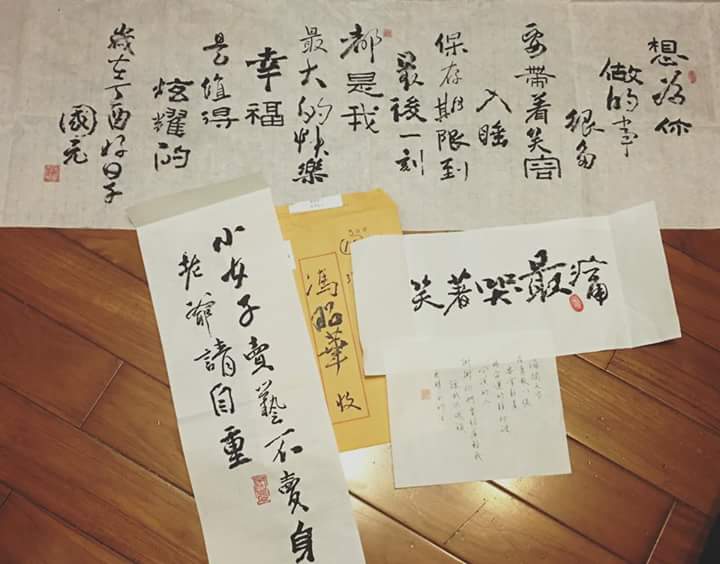 想為你
做的事
很多
要帶着笑容
入睡
保存期限到
最後一刻
都是我
最大的快樂
幸福
是值得
炫耀的
歲在丁酉好日子
國元
小女子賣藝不賣身
老爺請自重
馮昭華 收
笑著哭最痛